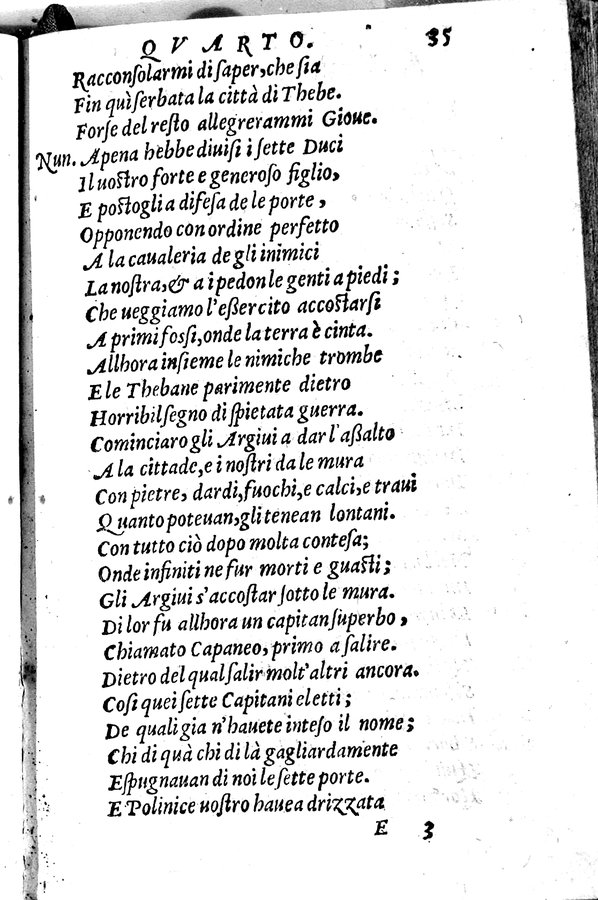 QVARTO. 35
Racconſolarmi di ſaper, che ſia
Fin quì ſerbata la città di Thebe.
Forſe del reſto allegrerammi Gioue.
Nun. Apena hebbe diuiſi i ſette Duci
Il uoſtro forte e generoſo figlio,
E poſtogli a difeſa de le porte,
Opponendo con ordine perfetto
A la caualeria de gli inimici
La noſtra, & a i pedon le genti a piedi;
Che ueggiamo l'eßercito accoſtarſi
A primi foſſi, onde la terra è cinta.
Allhora inſieme le nimiche trombe
E le Thebane parimente dietro
Horribil ſegno di ſpietata guerra.
Cominciaro gli Argiui a dar l'aßalto
A la cittade, e i noſtri da le mura
Con pietre, dardi, fuochi, e calci, e traui
Quanto poteuan, gli tenean lontani.
Con tutto ciò dopo molta conteſa;
Onde infiniti ne fur morti e guaſti;
Gli Argiui s'accoſtar ſotto le mura.
Di lor fu allhora un capitan ſuperbo,
Chiamato Capaneo, primo a ſalire.
Dietro del qual ſalir molt'altri ancora.
Coſi quei ſette Capitani eletti;
De quali gia n'hauete inteſo il nome;
Chi di quà chi di là gagliardamente
Eſpugnauan di noi le ſette porte.
E Polinice uoſtro hauea drizzata
E 3